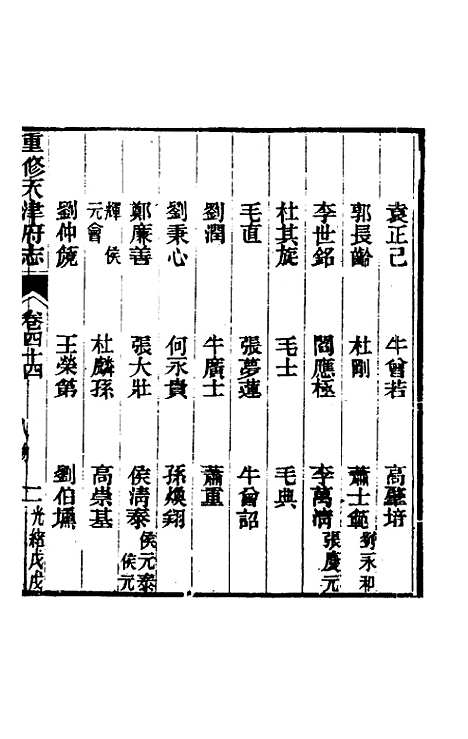 袁正己 牛曾若 高肇培
郭長齡 杜剛 蕭士範 鄧永和
李世銘 閻應極 李萬淸 張慶元
杜其旋 毛士 毛典
毛直 張夢蓮 牛曾詔
劉潤 牛廣士 蕭重
劉秉心 何永貴 孫煥翔
鄭廉善 張大壯 侯淸泰 侯元泰 侯元
輝 侯元會 杜麟孫 高崇基
劉仲篪 王榮第 劉伯壎
重修天津府志 卷四十四 二 光緒戊戌